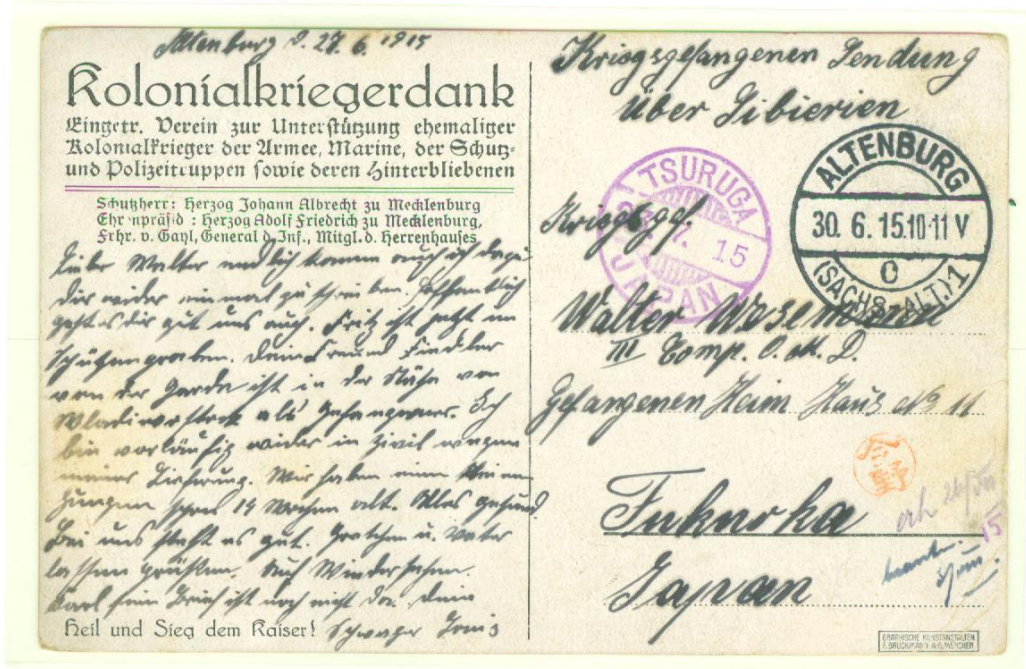 Altenburg d. 27. 6. 1915
Kolonialkriegerdank
Eingetr. Verein zur Unterstützung ehemaliger
Kolonialkrieger der Armee, Marine, der Schutz-
und Polizeitruppen sowie deren Hinterbliebenen
Schutzherr: Herzog Johann Albrecht zu Mecklenburg
Ehrenpräsid.: Herzog Adolf Friedrich zu Mecklenburg,
Frhr. v. Gayl, General d. Inf., Mitgl. d. Herrenhauses
Lieber Walter endlich komme auch ich dazu
dir wieder einmal zu schreiben. Hoffentlich
geht es dir gut uns auch. Fritz ist jetzt im
Schützengraben. Dein Freund Fiedler
von der Garde ist in der Nähe von
Wladiwostock als Gefangener. Ich
bin vorläufig wieder in Zivil wegen
meiner Ziehrung. Wir haben einen kleinen
Jungen schon 14 Wochen alt. Alles gesund.
Bei uns steht es gut. Gretchen u. Vater
lassen grüßen. Auf Wiedersehen.
Karl sein Brief ist noch nicht da. dein
Heil und Sieg dem Kaiser! Schwager
Kriegsgefangenen Sendung
über Sibierien
TSURUGA
15
JAPAN
ALTENBURG
30. 6. 15. 10-11 V
C
(SACHS.-ALT.) 1
Kriegsgef.
Walter Wosemann
III Comp. O. M. D.
Gefangenen Heim Haus No 11
Fukuoka
Japan
erh 26/VII
15
beantw.
GRAPHISCHE KUNSTANSTALTEN
F. BRUCKMANN A.G. MÜNCHEN